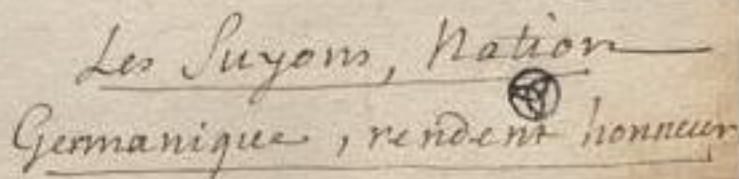 Les Suyons, Nation
Germanique, rendent honneur